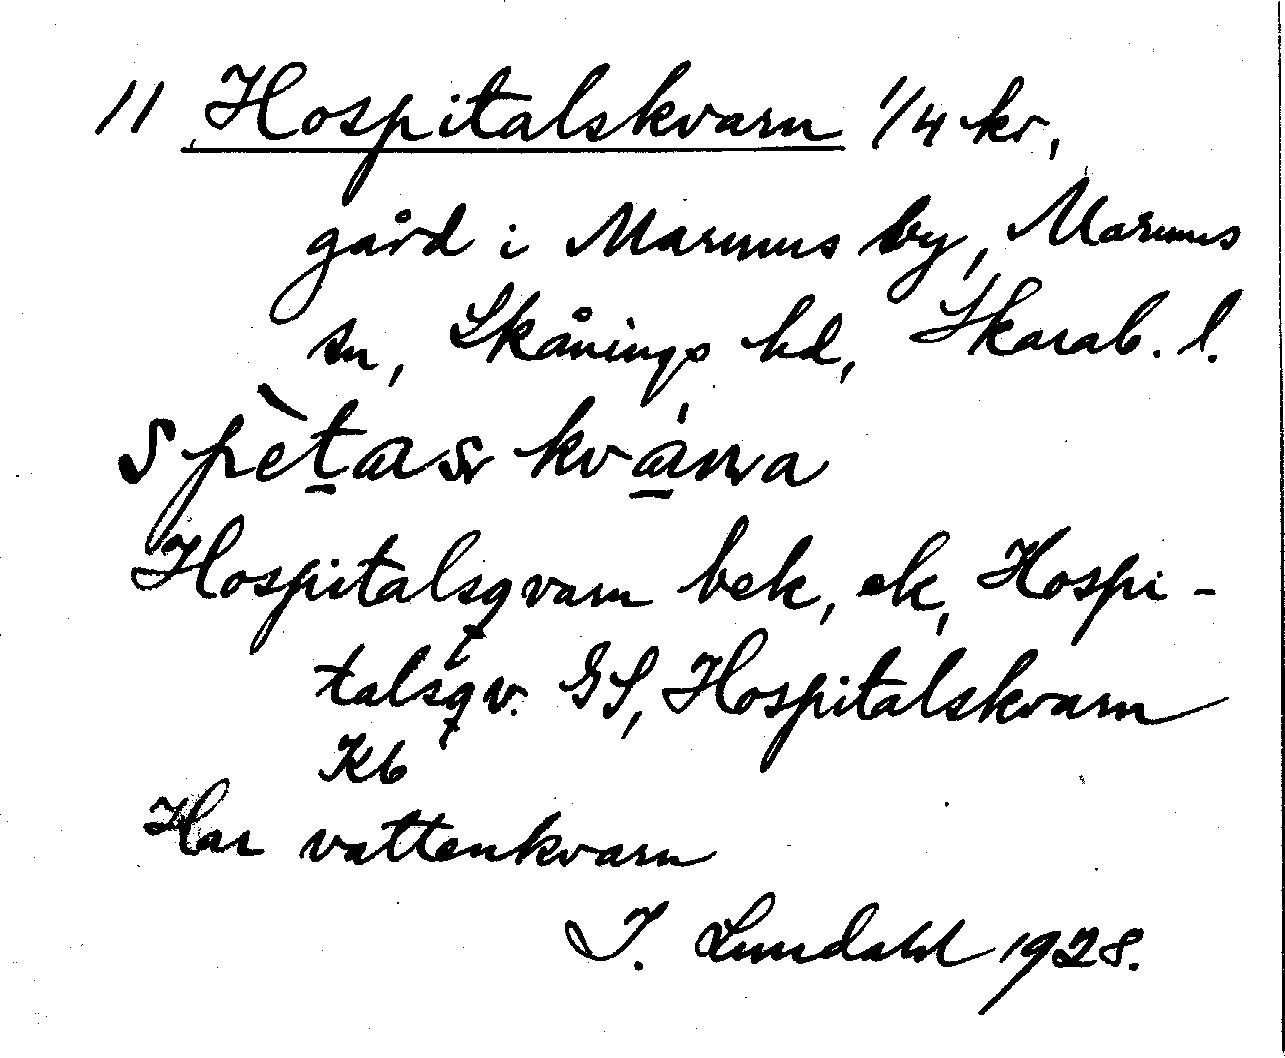 11 Hospitalskvarn 1/4 kr,
gård i Marums by, Marums
sn, Skånings hd, Skarab. l.
spètas kvána
Hospitalsqvarn bek, ek, Hospi-
talsqv. GS, Hospitalskvarn
Kb
Har vattenkvarn
I. Lundahl 1928.